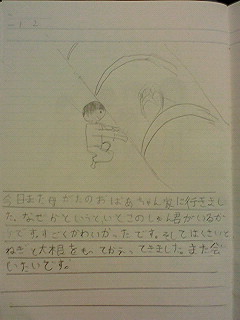 今日また母かたのおばあちゃん家に行ききし
た。なぜかというといとこのしゃん君がいるか
らです。すごくかわいかったです。そしてはくさいと
ねぎと大根をもってかえってきました。また会
いたいです。